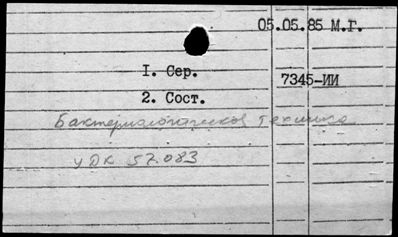 05.05.85 М.Г.
1. Сер.
7345-ИИ
2. Сост.
Бактериологическая техника
УДК 57.083